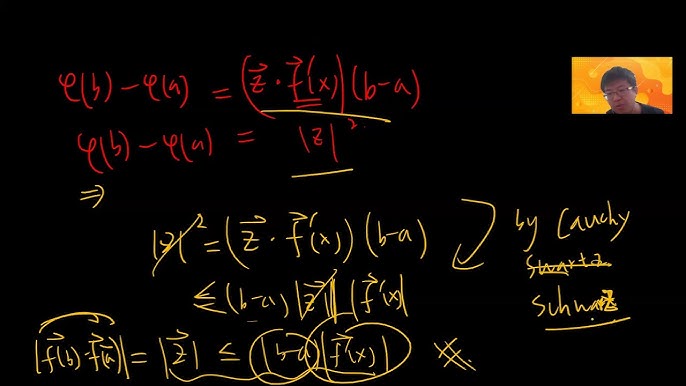 φ(b) − φ(a) = (z⃗ · f⃗'(x)) (b−a)
φ(b) − φ(a) = |z|²
⇒
|z|² = (z⃗ · f⃗'(x)) (b−a)
≤ (b−a) |z⃗| |f⃗'(x)|
by Cauchy
Swartz
Schwarz
|f⃗(b) f⃗(a)| = |z⃗| ≤ |b−a| |f⃗'(x)|